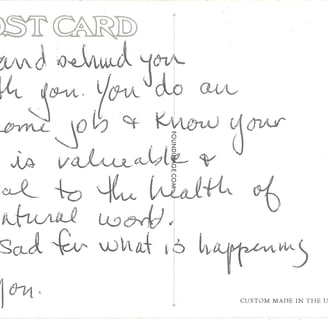 OST CARD
and behind you
th you. You do an
ome job & know your
is valueable &
al to the health of
atural world.
sad for what is happening
you.
FOUNDIMAGE.COM
CUSTOM MADE IN THE U